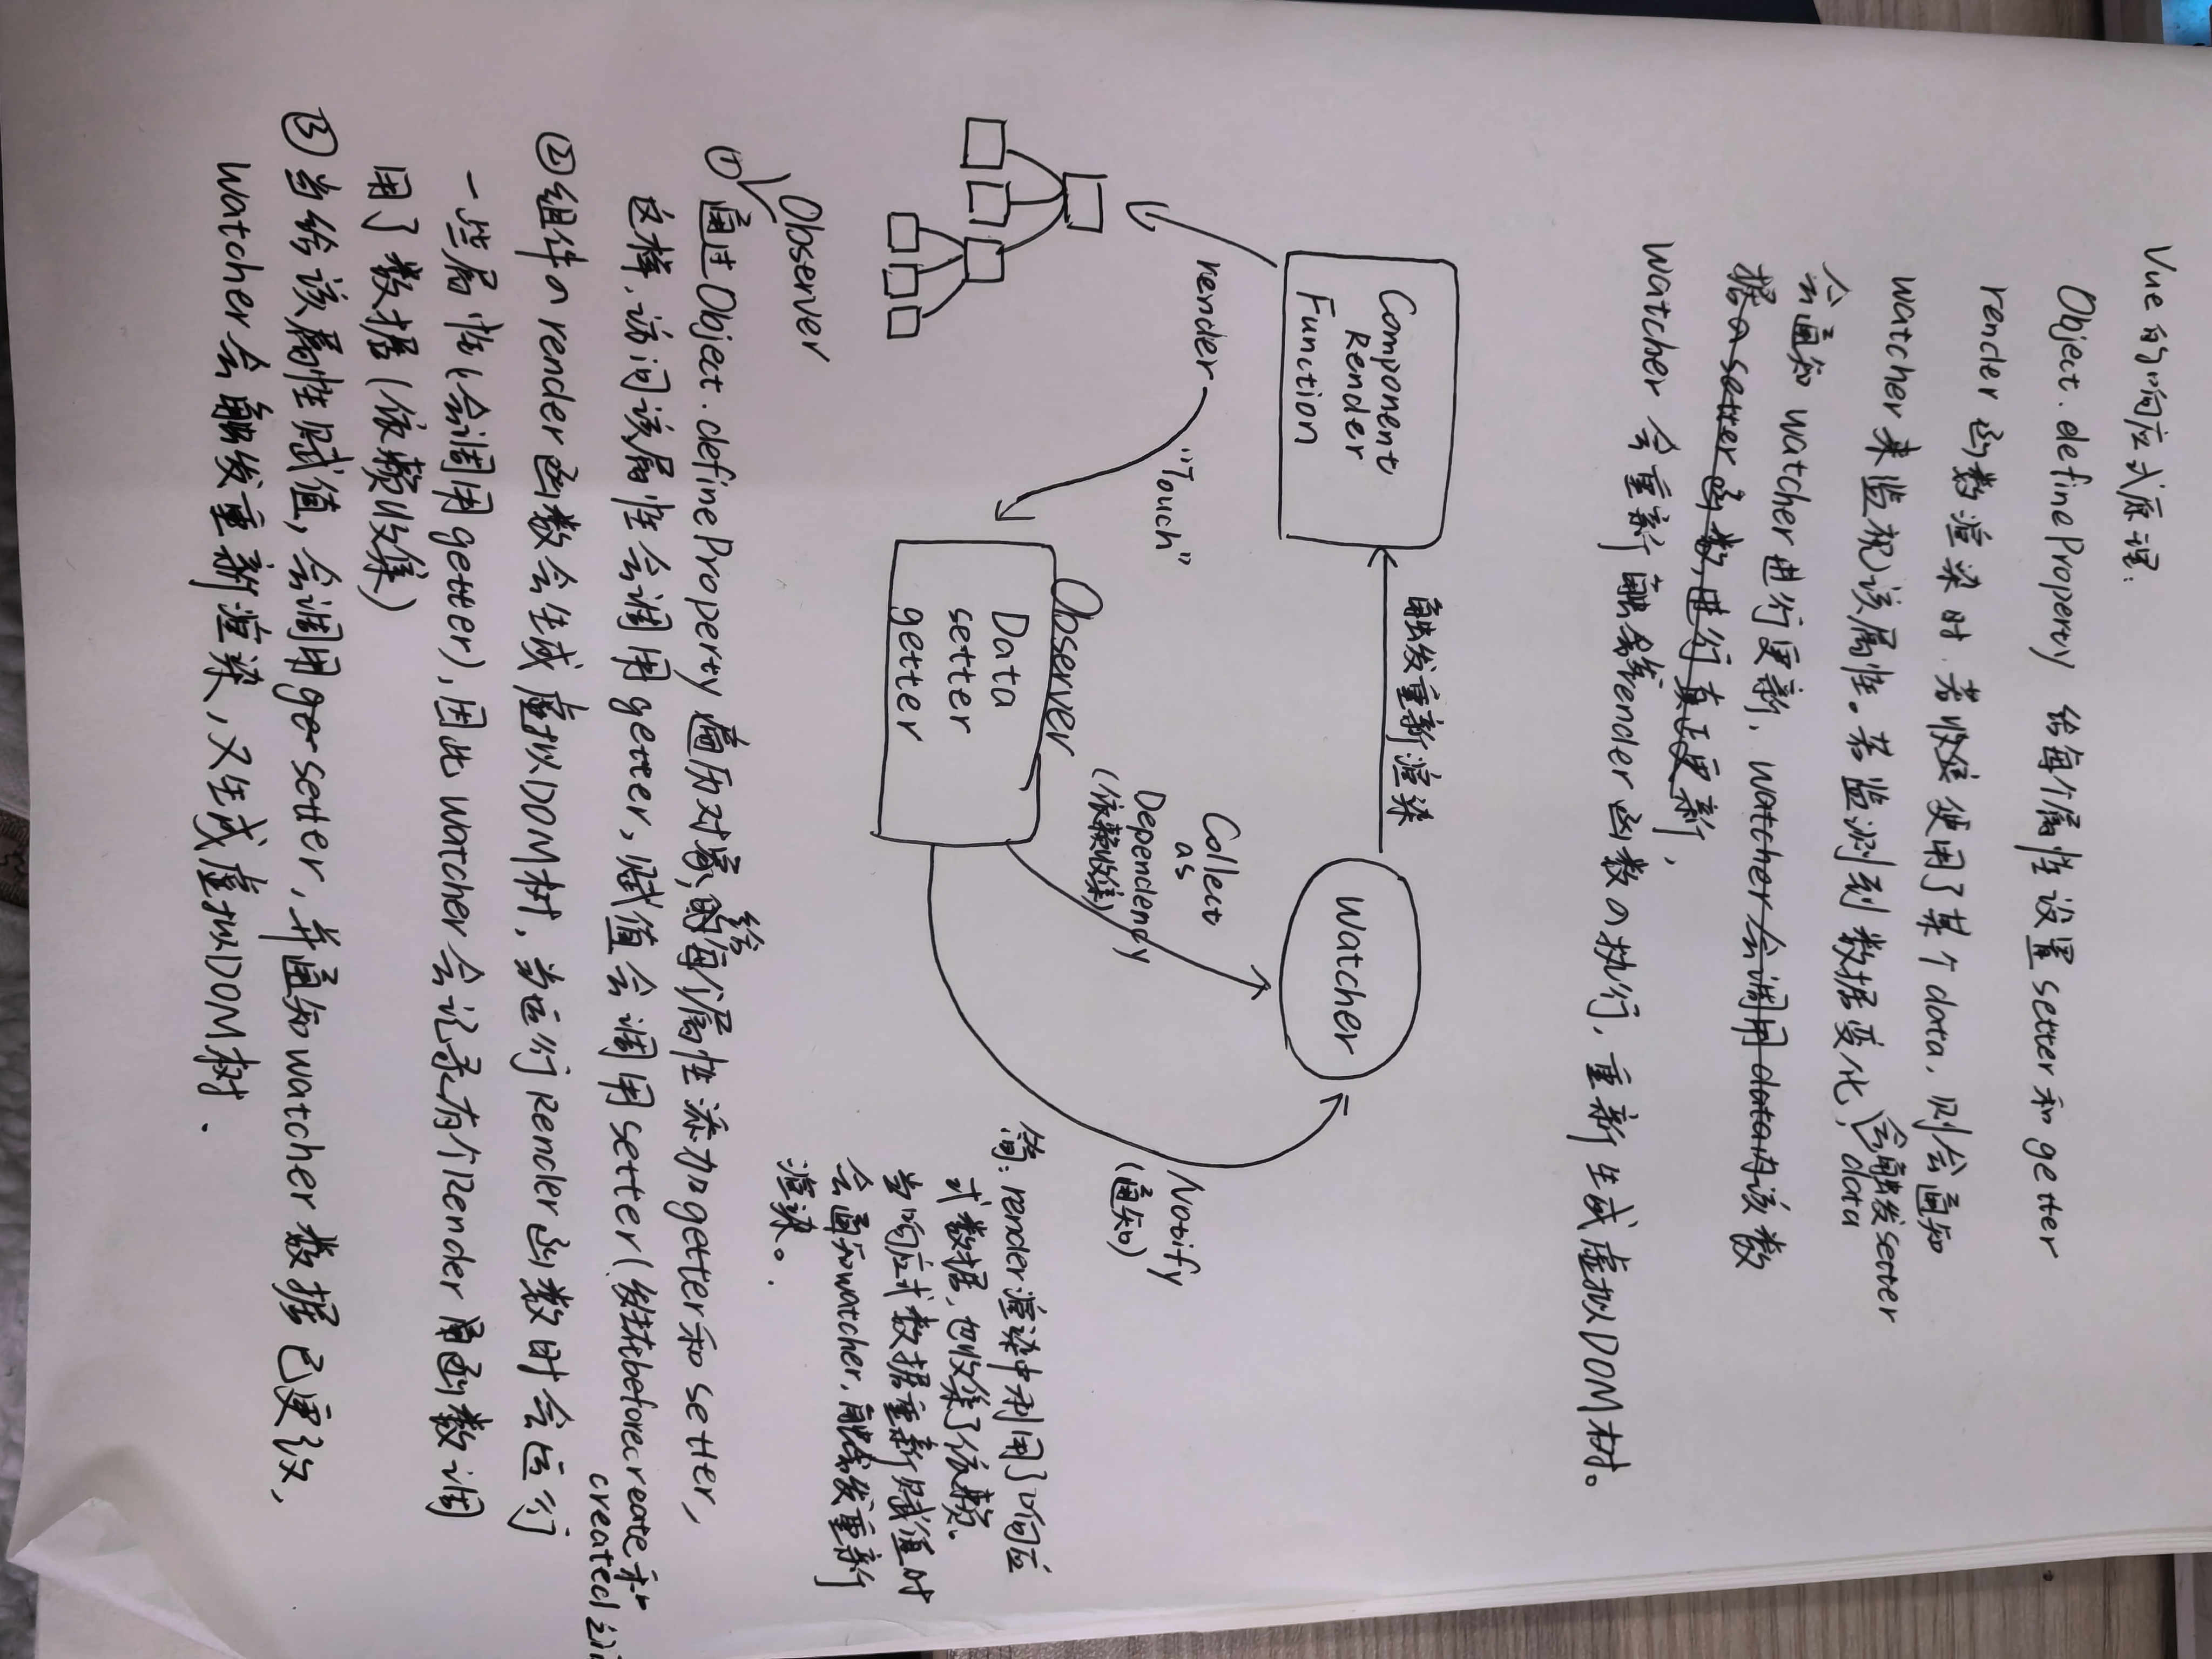 Vue 的响应式原理：
Object.defineProperty 给每个属性设置setter和getter
render 函数渲染时.若收集使用了某个data，则会通知
watcher来监视该属性。若监测到数据变化，会触发setter
data
会通知watcher进行更新，watcher会调用data内该数
据のsetter函数，进行真正更新，
watcher 会重新触发render函数の执行，重新生成虚拟DOM树。
触发重新渲染
Component
Render
Function
Watcher
render
"Touch"
Collect
as
Dependency
(依赖收集)
Notify
(通知)
Observer
Data
setter
getter
简：render渲染中利用了响应
式数据，也收集了依赖。
当响应式数据重新赋值时
会通知watcher，触发重新
渲染。
Observer
① 通过Object.defineProperty 遍历对象，给每个属性添加getter和setter，
这样，访问该属性会调用getter，赋值会调用setter(发生在beforecreate和
created之
②组件のrender函数会生成虚拟DOM树，当运行Render函数时会运行
一些属性(会调用getter)，因此watcher会记录有个Render函数调
用了数据(依赖收集)
③当给该属性赋值，会调用ge setter，并通知watcher数据已更改，
watcher会触发重新渲染，又生成虚拟DOM树.